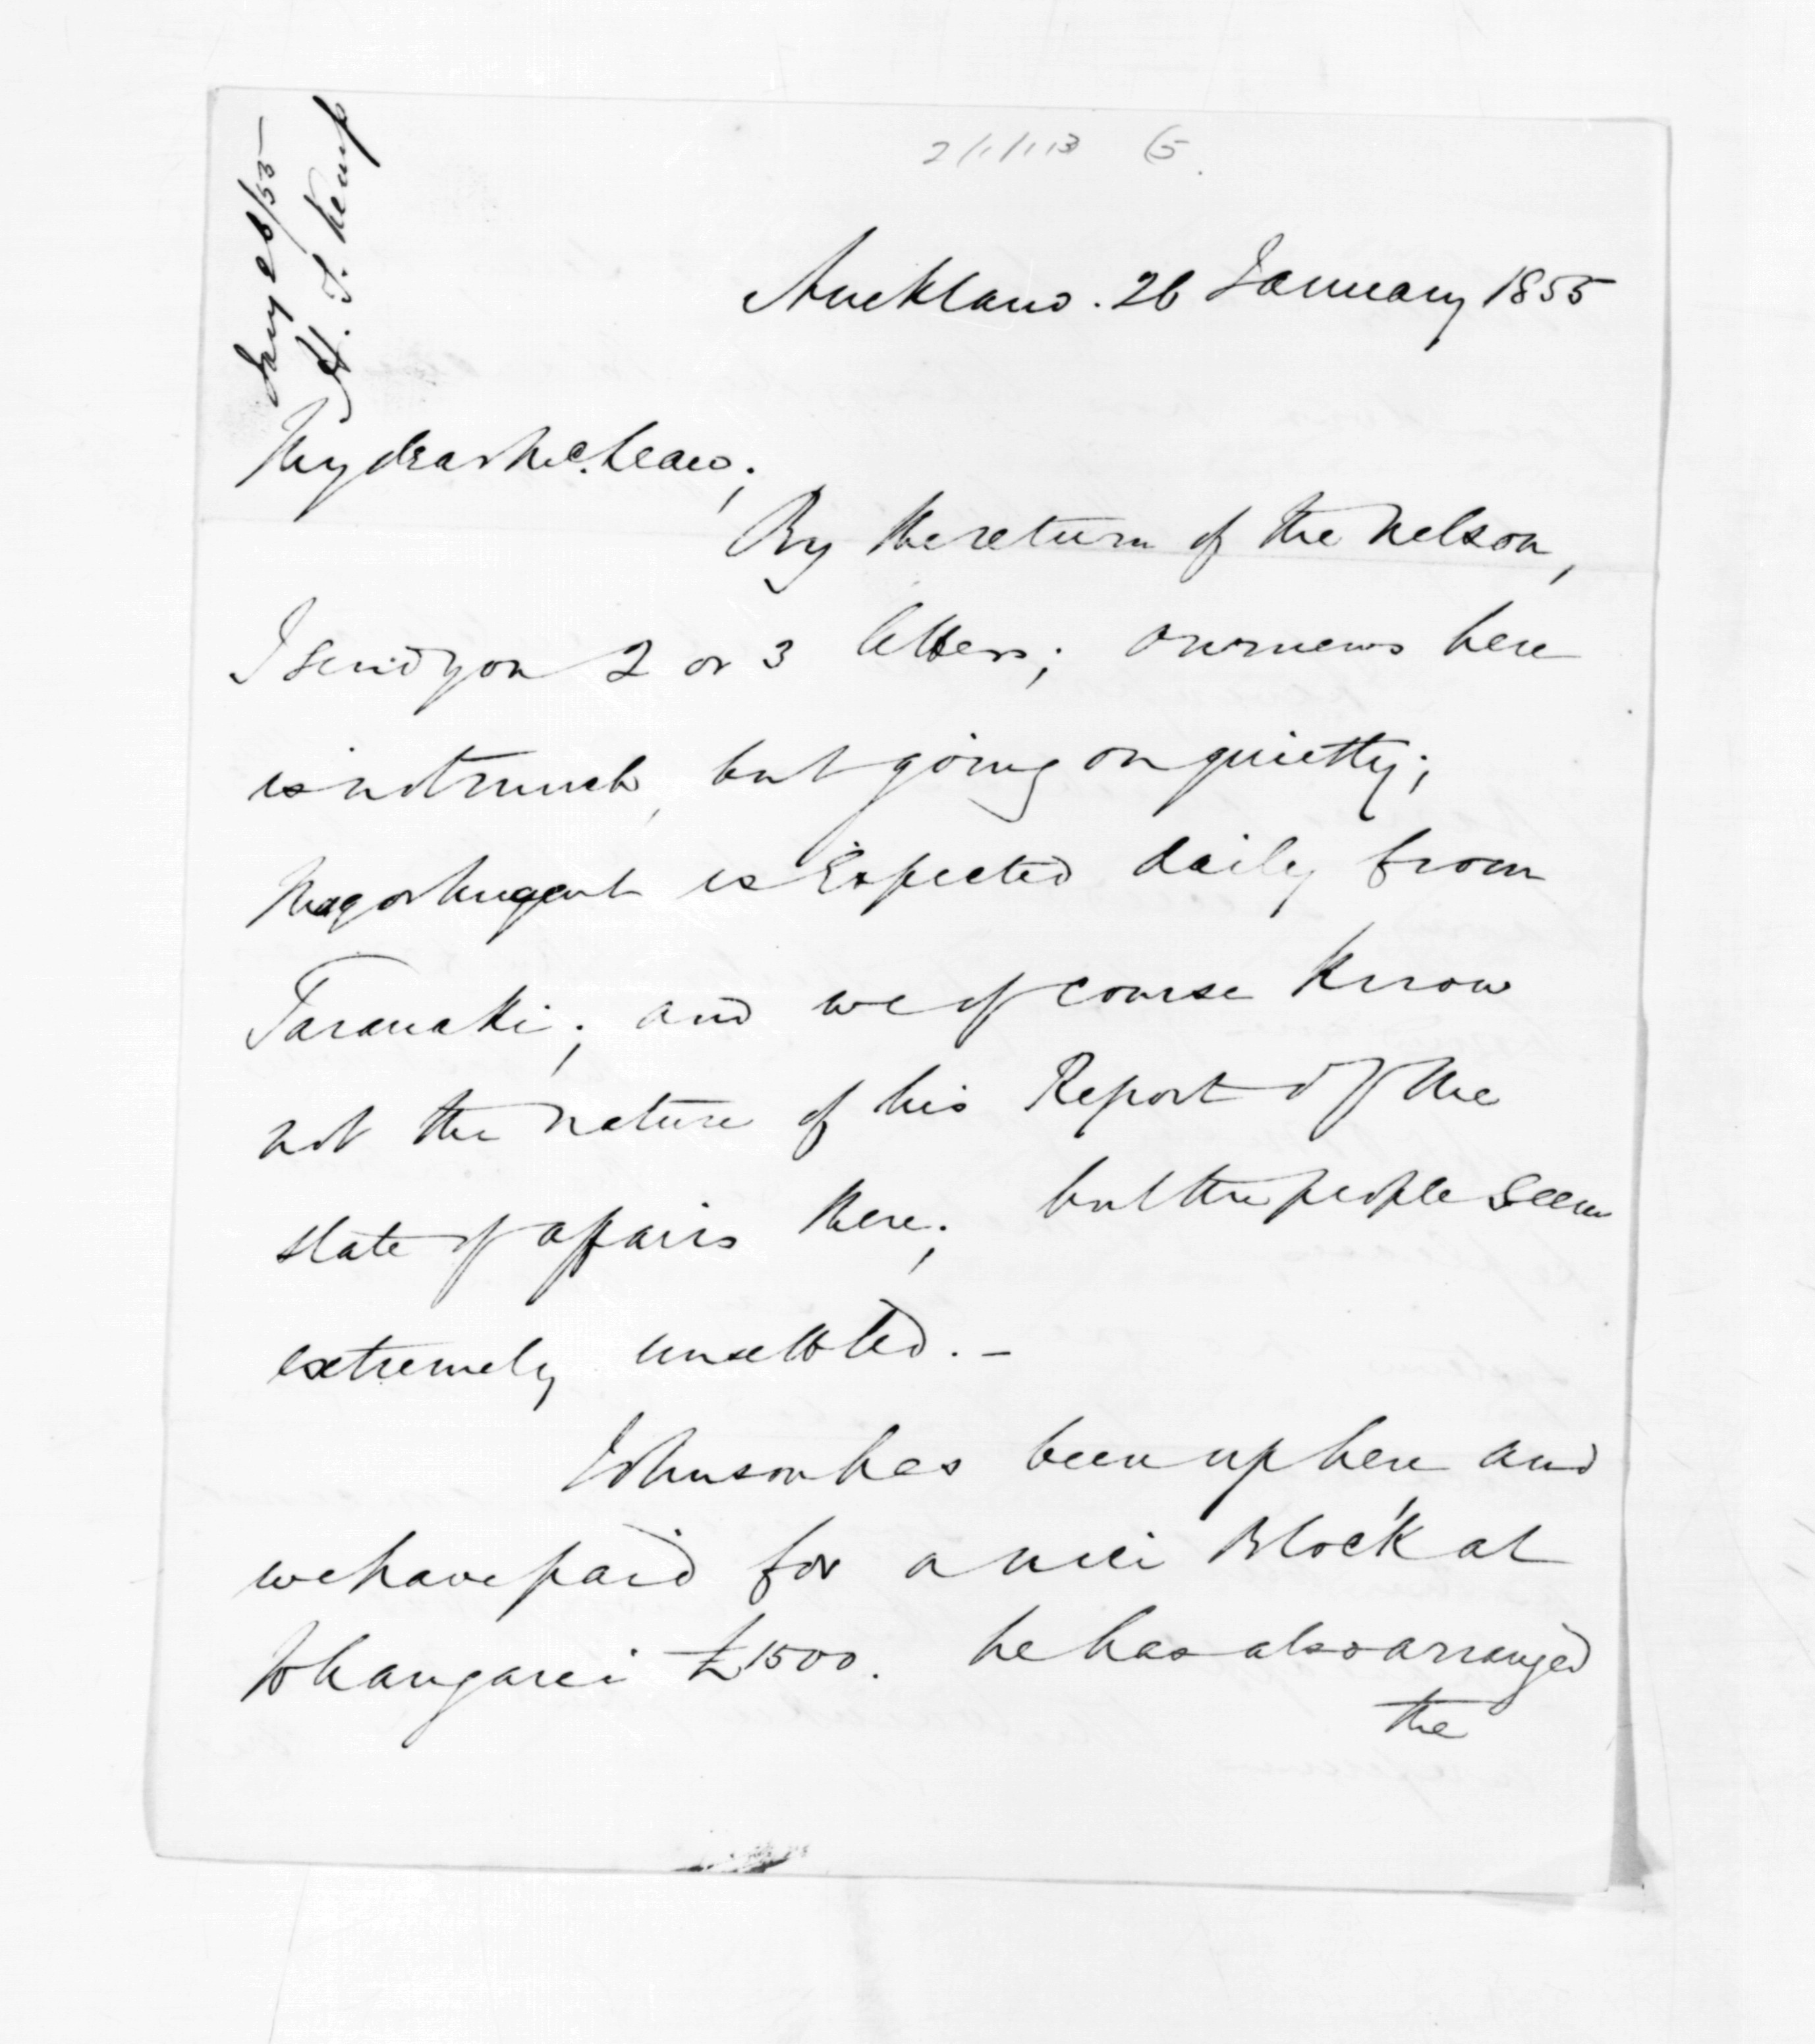 Jany 26/55
H. T. Kemp
2/1/113 (5.
Auckland. 26 January 1855
My dear McLean;
By the return of the Nelson,
I send you 2 or 3 letters; our news here
is not much, but going on quietly;
Major Nugent is Expected daily from
Taranaki; and we of course Know
not the nature of his Report of the
state of affairs there; but the people seem
extremely unsettled. -
Johnson has been up here and
we have paid for a nice Block at
Whangarei £1500. he has also arranged
the